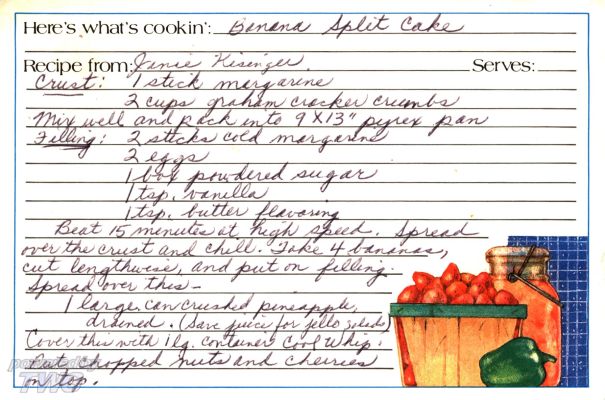 Here's what's cookin': Banana Split Cake
Recipe from: Janie Kisinger Serves:
Crust: 1 stick margarine
2 cups graham cracker crumbs
Mix well and pack into 9X13" pyrex pan
Filling: 2 sticks cold margarine
2 eggs
1 box powdered sugar
1 tsp. vanilla
1 tsp. butter flavoring
Beat 15 minutes at high speed. Spread
over the crust and chill. Take 4 bananas,
cut lengthwise, and put on filling.
Spread over this -
1 large can crushed pineapple,
drained. (Save juice for jello salads)
Cover this with 1 lg. container Cool Whip.
Put chopped nuts and cherries
on top.
powered by
TWG